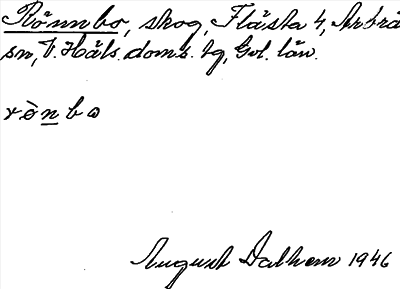 Rönnbo, skog, Flästa 4, Arbrå
sn, V. Häls. doms. tg, Gvl. län.
rònbo
August Dalhem 1946